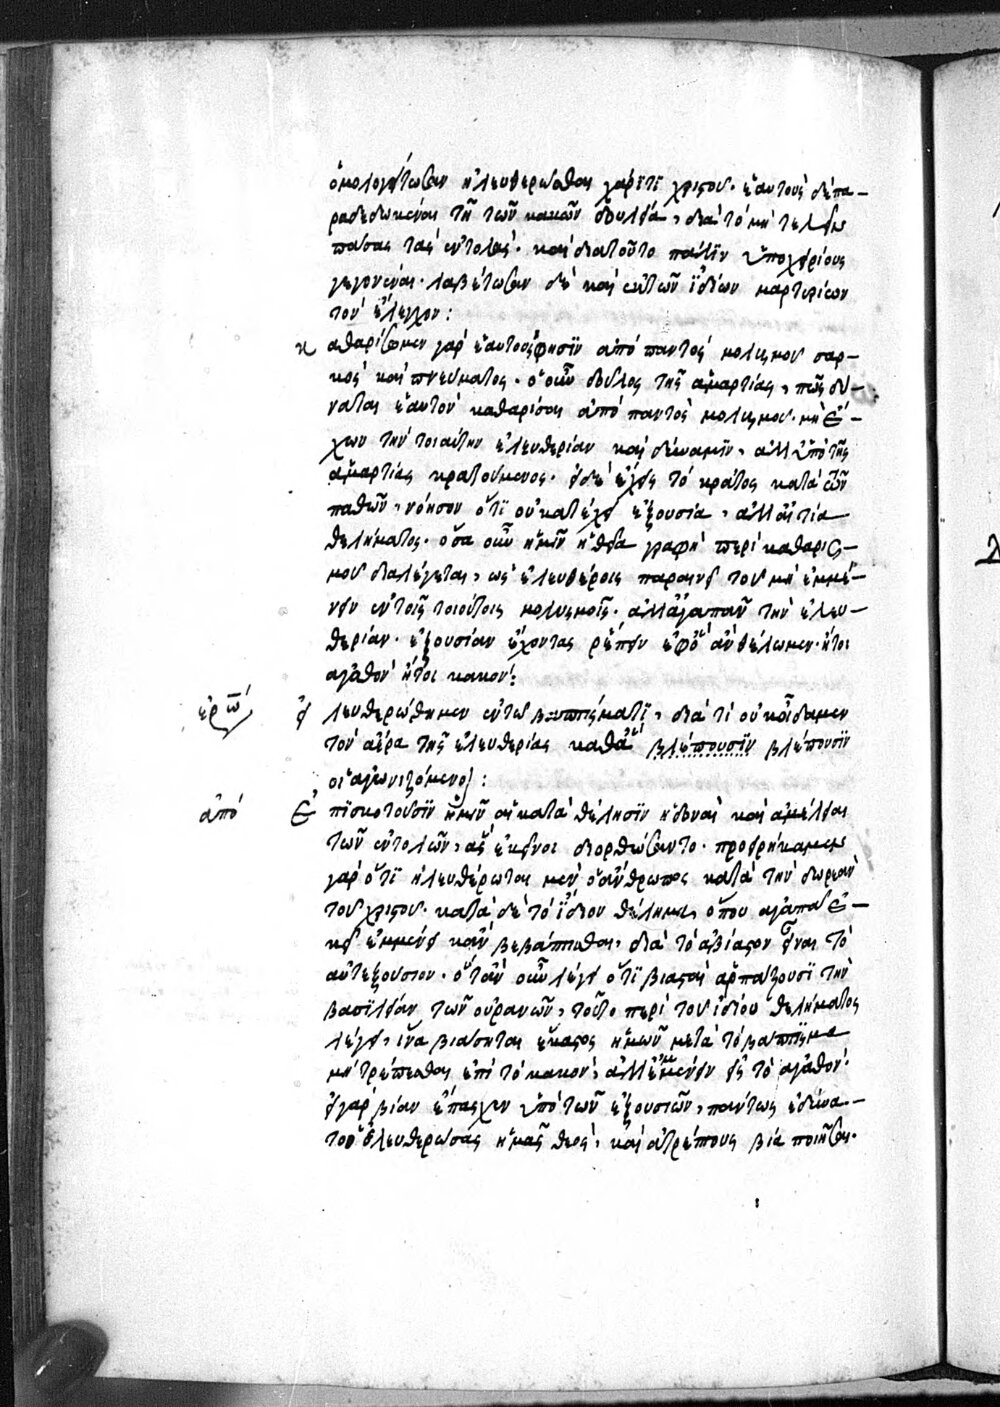 ὁμολογείτωσαν ἠλευθερῶσθαι χάριτι χριστοῦ· ἑαυτοὺς δὲ πα-
ραδεδωκέναι τῇ τῶν κακῶν δουλείᾳ, διὰ τὸ μὴ τελεῖν
πάσας τὰς ἐντολὰς· καὶ διατοῦτο πάλϊν ὑποχειρίους
γεγονέναι· λαβέτωσαν δὲ καὶ ἐκ τῶν ϊδίων μαρτυριῶν
τὸν ἔλεγχον:
καθαρίσωμεν γὰρ ἑαυτοὺς φησὶν ἀπὸ παντὸς μολυσμοῦ σαρ-
κὸς καὶ πνεύματος· ὁ οὖν δοῦλος τῆς ἁμαρτίας, πῶς δύ-
ναται ἑαυτὸν καθαρίσαι ἀπὸ παντὸς μολυσμοῦ· μὴ ἔ-
χων τὴν τοιαύτην ἐλευθερίαν καὶ δύναμϊν, ἀλλ' ὑπὸ τῆς
ἁμαρτίας κρατούμενος· εἰ δὲ ἔχεις τὸ κράτος κατὰ τῶν
παθῶν, νόησον ὅτι οὐ κατέχει ἐξουσία, ἀλλ' αἰτία
θελήματος· ὅσα οὖν ἡμῖν ἡ θεία γραφὴ περὶ καθαρισ-
μοῦ διαλέγεται, ὡς ἐλευθέροις παραινεῖ τοῦ μὴ ἐμμέ-
νειν ἐν τοῖς τοιούτοις μολυσμοῖς· ἀλλ' ἀγαπᾶν τὴν ἐλευ-
θερίαν· ἐξουσίαν ἔχοντας ῥέπειν ἐφ' ὃ ἂν θέλωμεν· ἤτοι
ἀγαθὸν ἤτοι κακόν:
ἐρώ εἰ λευθερώθημεν ἐν τῷ βαπτίσματι, διὰ τί οὐκ οἴδαμεν
τὸν ἀέρα τῆς ἐλευθερίας καθὰ βλέπουσϊν βλέπουσϊν
οἱ ἀγωνιζόμενοι:
ἀπό Ἐπϊσκοτοῦσϊν ἡμῖν αἱ κατὰ θέλησϊν ἡδοναὶ καὶ ἀμέλειαι
τῶν ἐντολῶν, ἃς ἐκεῖνοι διορθώσαντο· προειρήκαμεν
γὰρ ὅτι ἠλευθέρωται μὲν ὁ ἄνθρωπος κατὰ τὴν δωρεὰν
τοῦ χριστοῦ· κατὰ δὲ τὸ ἴδιον θέλημα, ὅπου ἀγαπᾶ ἐ-
κεῖ ἐμμένει κἂν βεβάπτισται, διὰ τὸ ἀβίαστον εἶναι τὸ
αὐτεξούσιον· ὅταν οὖν λέγει ὅτι βιασταὶ ἁρπάζουσϊ τὴν
βασϊλείαν τῶν οὐρανῶν, τοῦτο περὶ τοῦ ἰδίου θελήματος
λέγει, ἵνα βιάσηται ἕκαστος ἡμῶν μετὰ τὸ βάπτϊσμα
μὴ τρέπεσθαι ἐπὶ τὸ κακὸν, ἀλλ' ἐμμένειν εἰς τὸ ἀγαθόν·
εἰ γὰρ βίαν ἔπασχεν ὑπὸ τῶν ἐξουσιῶν, πάντως ἐδύνα-
το ὁ ἐλευθερώσας ἡμᾶς θεὸς, καὶ ἀτρέπτους βία ποιῆσαι·